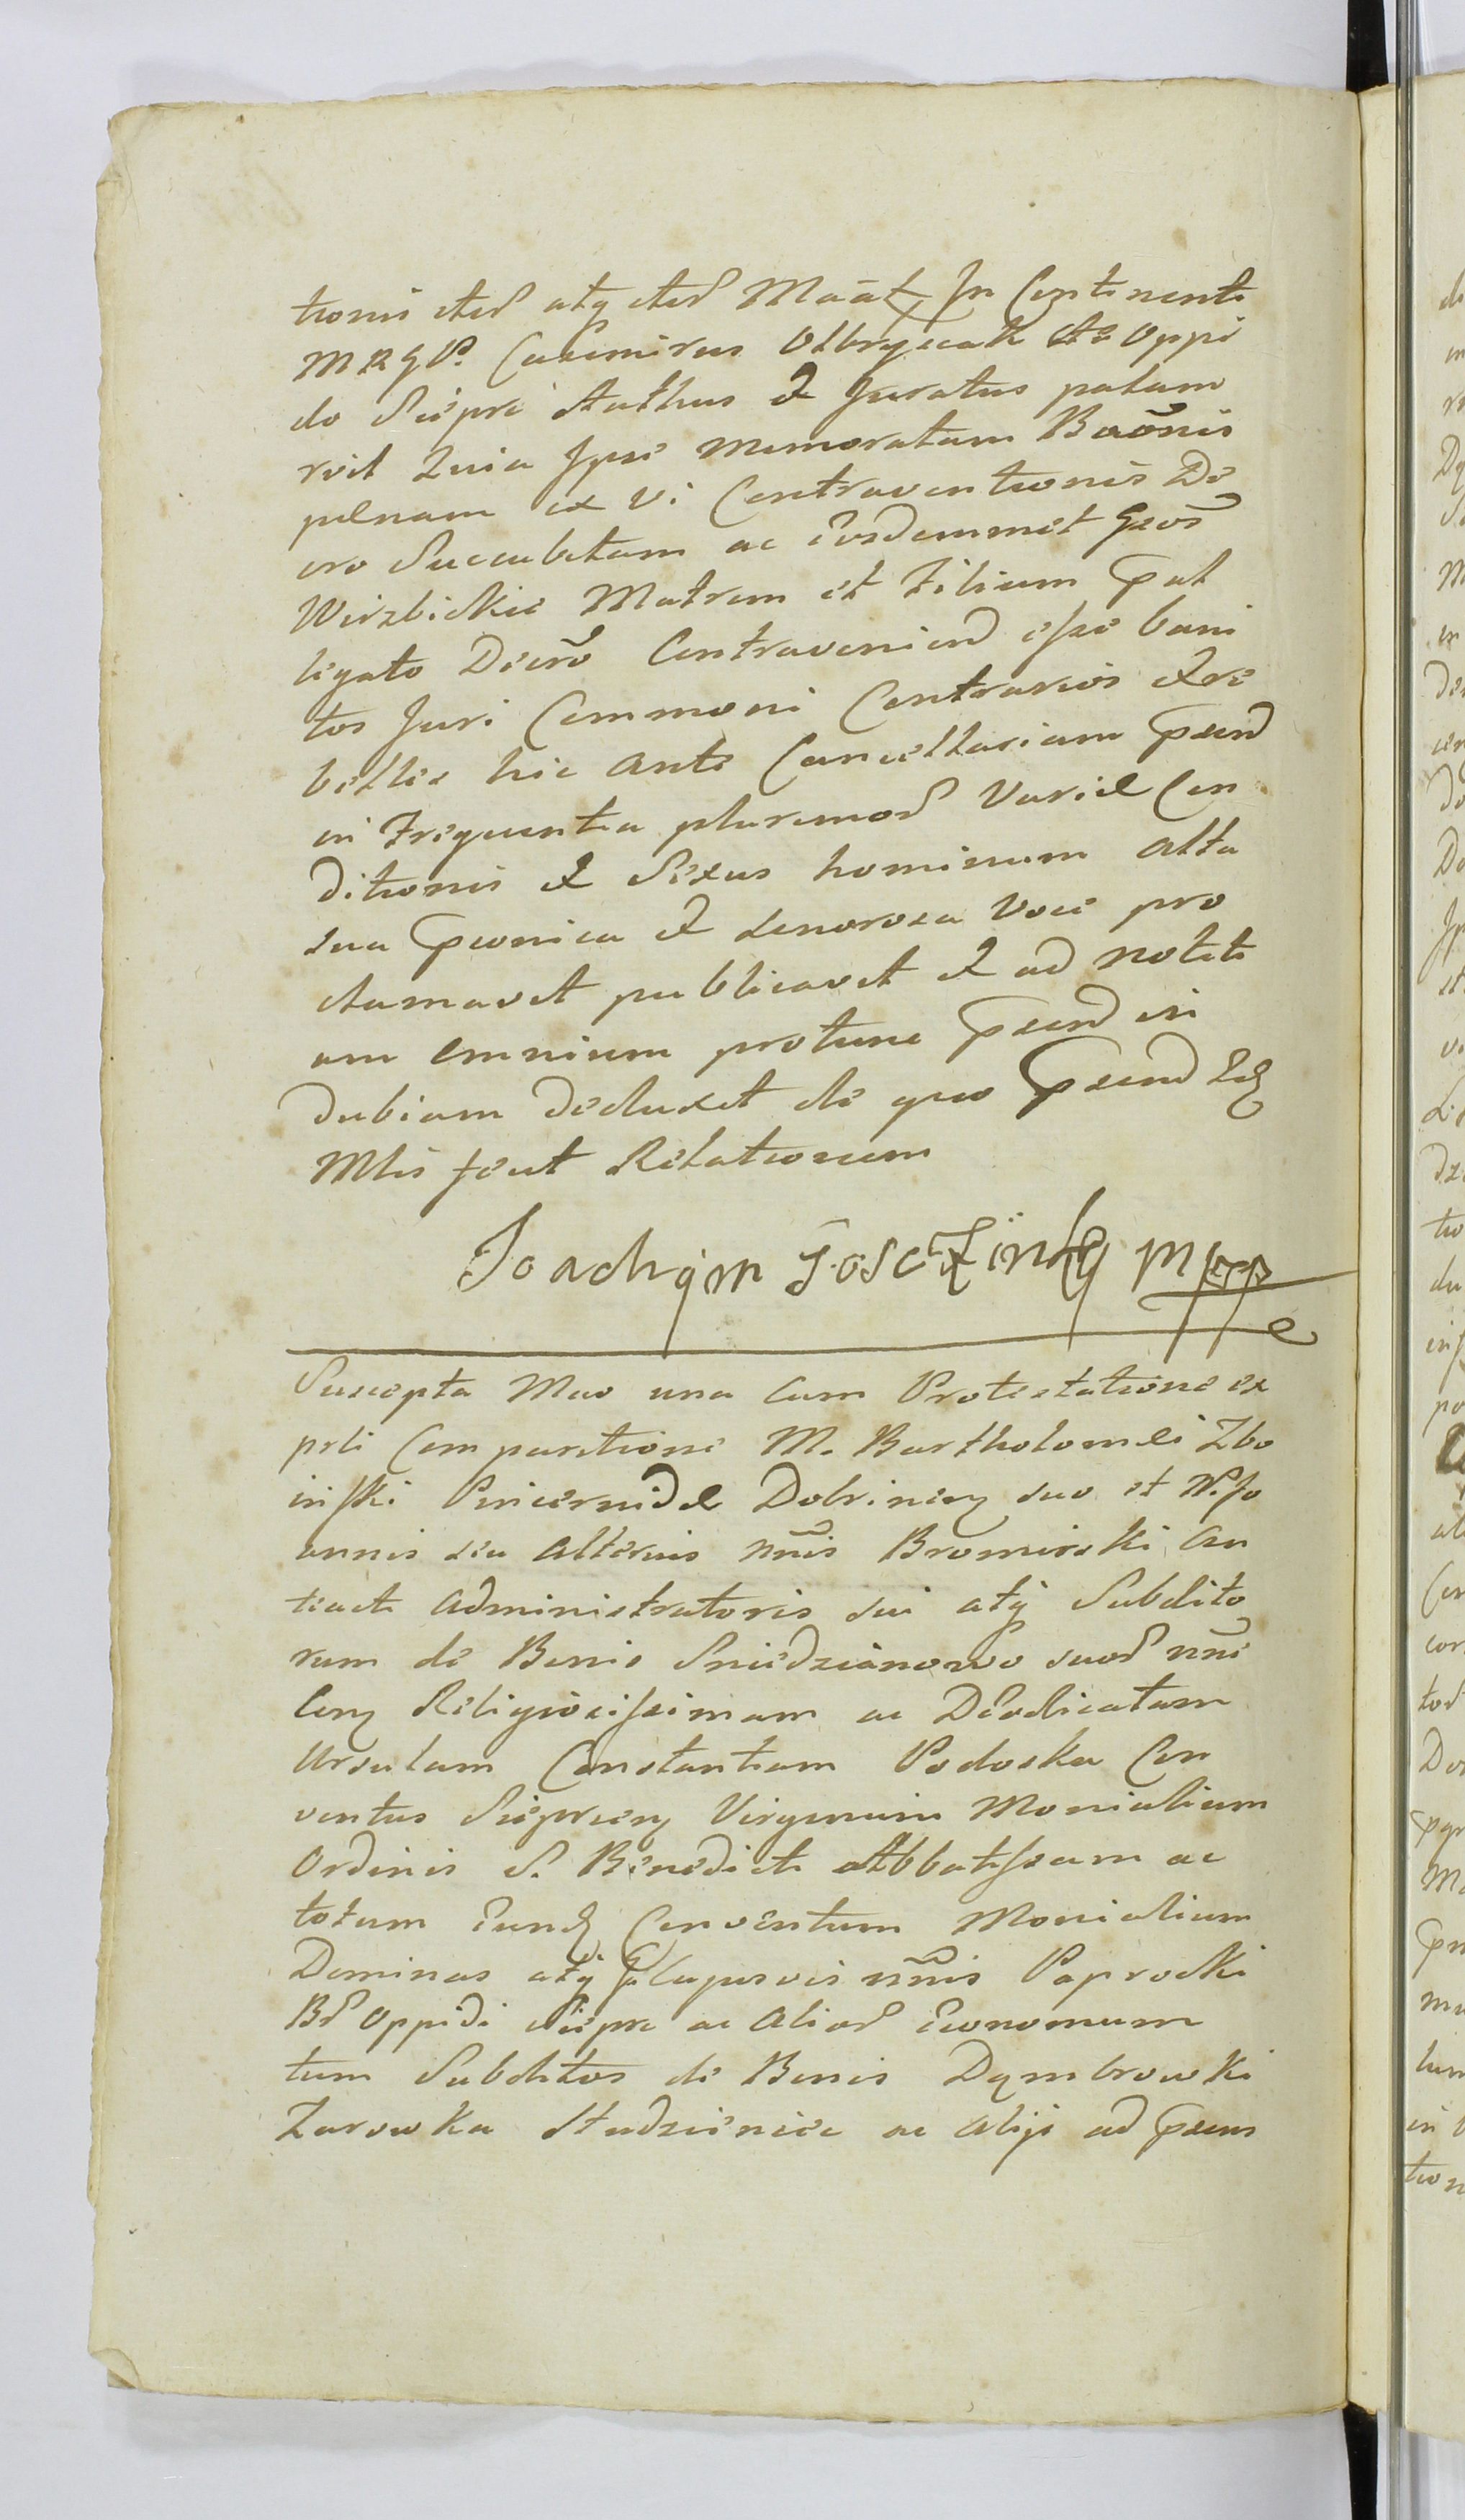 tionis ejusd atq ejusd Maât In Continenti
M R G P. Casimirus Olbryszak de Oppi
do Siepre Authus & Juratus palam
rvit Quia Ipse memoratam Baônis
pænam ex vi Contraventionis De
cro Succubitam ac Eosdemmet Gsôs
Wirzbickie Matrem et Filium
ligato Decrô Contravenien esse bani
tos Juri Communi Contrarios & re
belles hic ante Cancellariam Psen
in Frequentia plurimor Variæ Con
ditionis & Sexus hominum alta
sua Pconica & sonorosa Voce pro
clamavit publicavit & ad notiti
am omnium protunc Psen in
dubiam deduxit de quo Psen
Mtis fecit Relationem
Joachym mpp
Suscepta Mao una Cum Protestatione ex
prti Comparitione M. Bartholomæi Zbo
inski Pincernidæ Dobrinen suo et N. Jo
annis seu Alterius nnis Bromirski An
teacti Administratoris sui atq Subdito
rum de Bonis Sniedzianowo suor nnê
Cong Religiosissimam ac Deodicatam
Ursulam Constantiam Podoska Con
ventus Siepricen Virginum Monialium
Ordinis S. Benedicti Abbatissam ac
totum Eund Conventum Monialium
Dominas atq nnis Paprocki
Bor Oppidi Siepre ac Alior Economum
tum Subditos de Bonis Dymbrowki
Zurowka Studzienice ac Aliis ad Psens